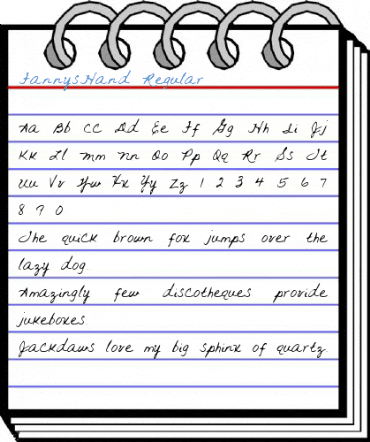 FannysHand Regular
Aa Bb Cc Dd Ee Ff Gg Hh Ii Jj
Kk Ll Mm Nn Oo Pp Qq Rr Ss Tt
Uu Vv Ww Xx Yy Zz 1 2 3 4 5 6 7
8 9 0
The quick brown fox jumps over the
lazy dog
Amazingly few discotheques provide
jukeboxes
Jackdaws love my big sphinx of quartz